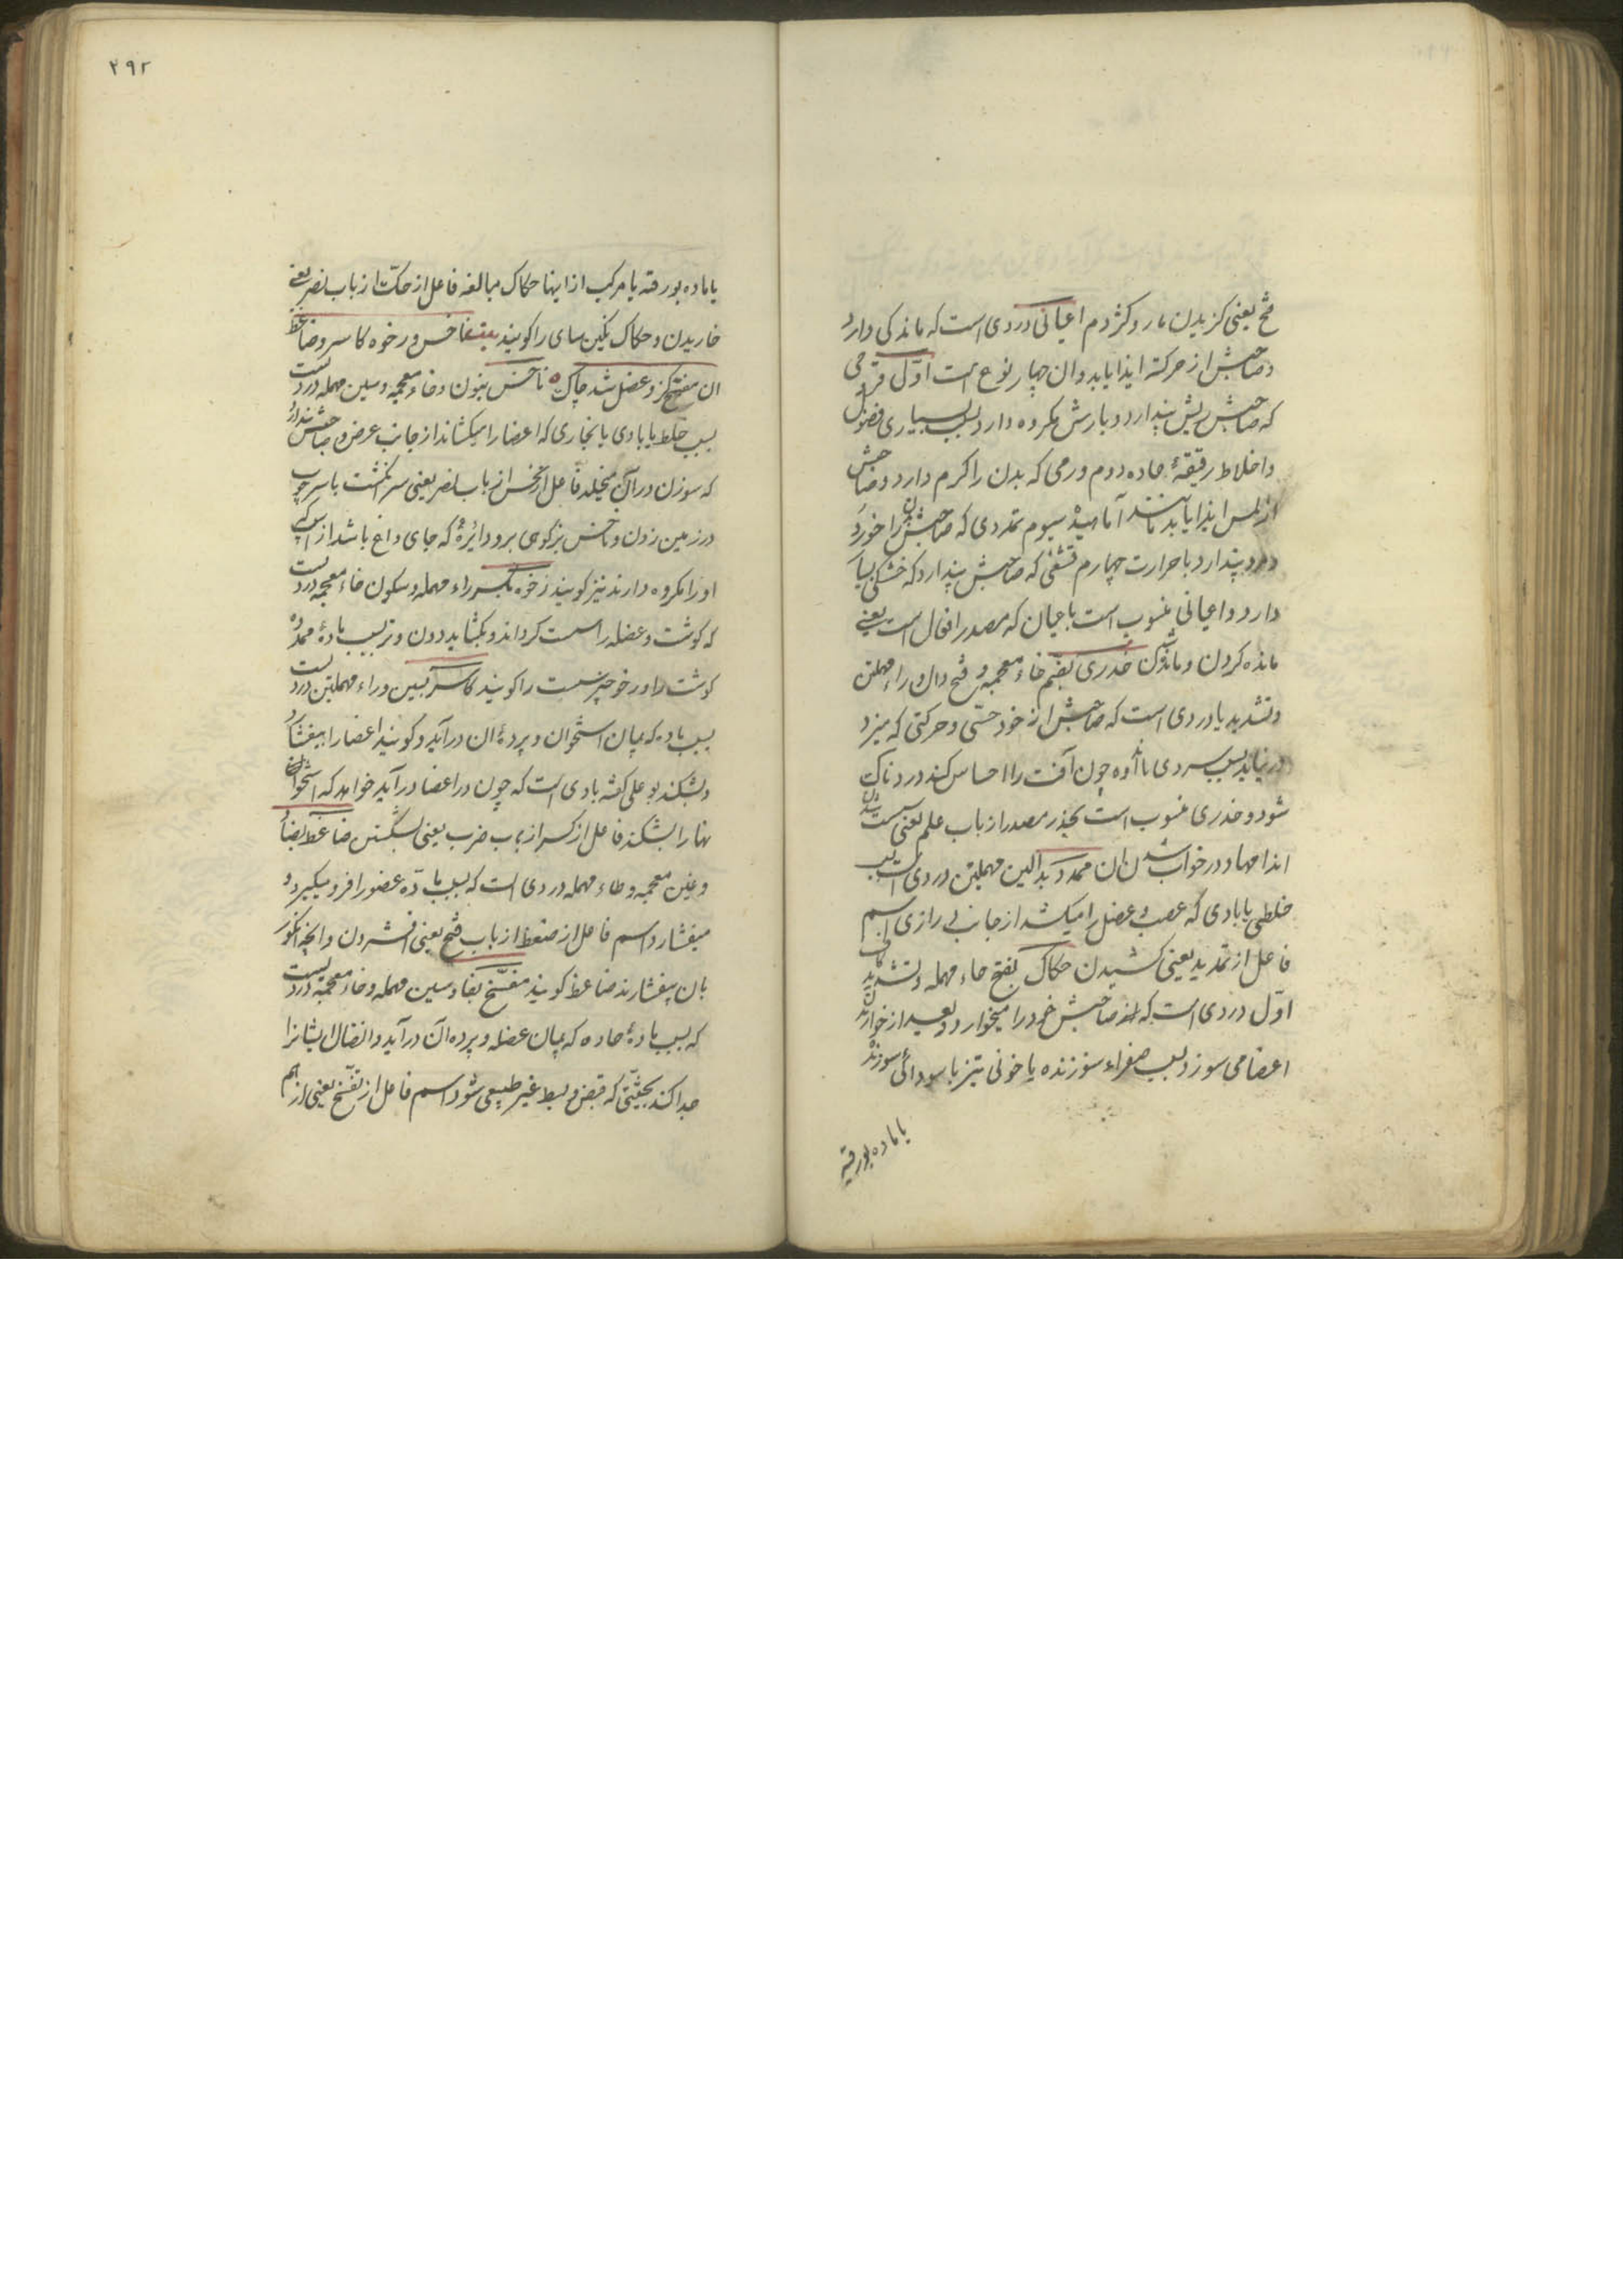 فتح یعنی گزیدن مار و کژدم اعیائی دردی است که ماندکی دارد
و صاحبش از حرکة ایذا یابد و ان چهار نوع است اوّل قروحی
که صاحبش ریش پندارد و بارش مکروه دارد بسبب بسیاری فضول
و اخلاط رقیقهٔ حاده دوم ورمی که بدن را گرم دارد و صاحبش
از لمس ایذا یابد مانند آماسیدهٔ سیوم تمددی که صاحبش را خورد
پندارد با حرارت چهارم قشفی که صاحبش پندارد که خشکی بسیار
دارد و اعیائی منسوب است باعیان که مصدر افعال است یعنی
مانده کردن و مانده شدن خدری بضم خاء معجمه و فتح دال و راء مهملتین
و تشدید یا دردی است که صاحبش از خود حسّی و حرکتی که میزد
در نیابد بسبب سردی یا ماده چون آفت را احساس کند دردناک
شود و خدری منسوب است بخدر مصدر از باب علم یعنی سست شدن
اندامها و در خواب شدن ان ممدد بدالین مهملتین دردی است بسبب
خلطی یا بادی که عصب و عضل را میکشد از جانب درازی اسم
فاعل از تمدید یعنی کشیدن حکاک بفتح حاء مهمله و تشدید کاف
اوّل دردی است که صاحبش خود را میخوارد و بعد از خواریدن
اعضا می سوزد بسبب صفراء سوزنده یا خونی تیز یا سودائی سوزنده
یا ماده بورقیه
۲۹۲
یا ماده بورقیه یا مرکب از اینها حکاک مبالغه فاعل از حکّت از باب نصر یعنی
خاریدن و حکاک نگین سای را گویند ناخس و رخوه کاسر و ضاغط
ان مفتّح کز و عضل شد چاک ناخس بنون و خاء معجمه و سین مهمله دردیست
بسبب خلط یا بادی یا بخاری که اعضا را میکشاند از جانب عرض و صاحبش پندارد
که سوزن در آن میخلد فاعل از نخس از باب نصر یعنی سر انگشت یا سر چوب
در زمین زدن و ناخس بزکوهی بر و دائرهٔ که جای داغ باشد از اسپ که
او را مکروه دارند نیز گویند رخوه بکسر راء مهمله و سکون خاء معجمه دردیست
که گوشت و عضله را سست گرداند و بکشاید دون وتر بسبب مادهٔ ممدده
گوشت را و رخو چیز سست را گویند کاسر بسین و راء مهملتین دردیست
بسبب باد که میان استخوان و پردهٔ ان درآید و گویند اعضا را بیفشارد
و بشکند بو علی گفته بادی است که چون در اعضا درآید خواهد که استخوان
نها را بشکند فاعل از کسر از باب ضرب یعنی شکستن ضاغط بضاد
و غین معجمه و طاء مهمله دردی است که بسبب مادّه عضو را فرو میگیرد و
میفشارد اسم فاعل از ضغط از باب فتح یعنی افشردن و انچه انگور
بان بیفشارند ضاغط گویند مفسّخ بفا و سین مهمله و خاء معجمه دردیست
که بسبب مادهٔ حاده که میان عضله و پرده آن درآید و اتصال ایشانرا
جدا کند بحیثیّتی که قبض و بسط غیر طبیعی شود اسم فاعل از تفسّخ یعنی از هم